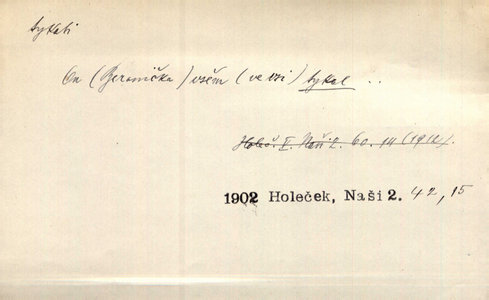 tykati
On (Beranička) všem (ve vsi) tykal ..
Holeč. X. Naši 2. 60. 14 (1910).
1902 Holeček, Naši 2. 42, 15